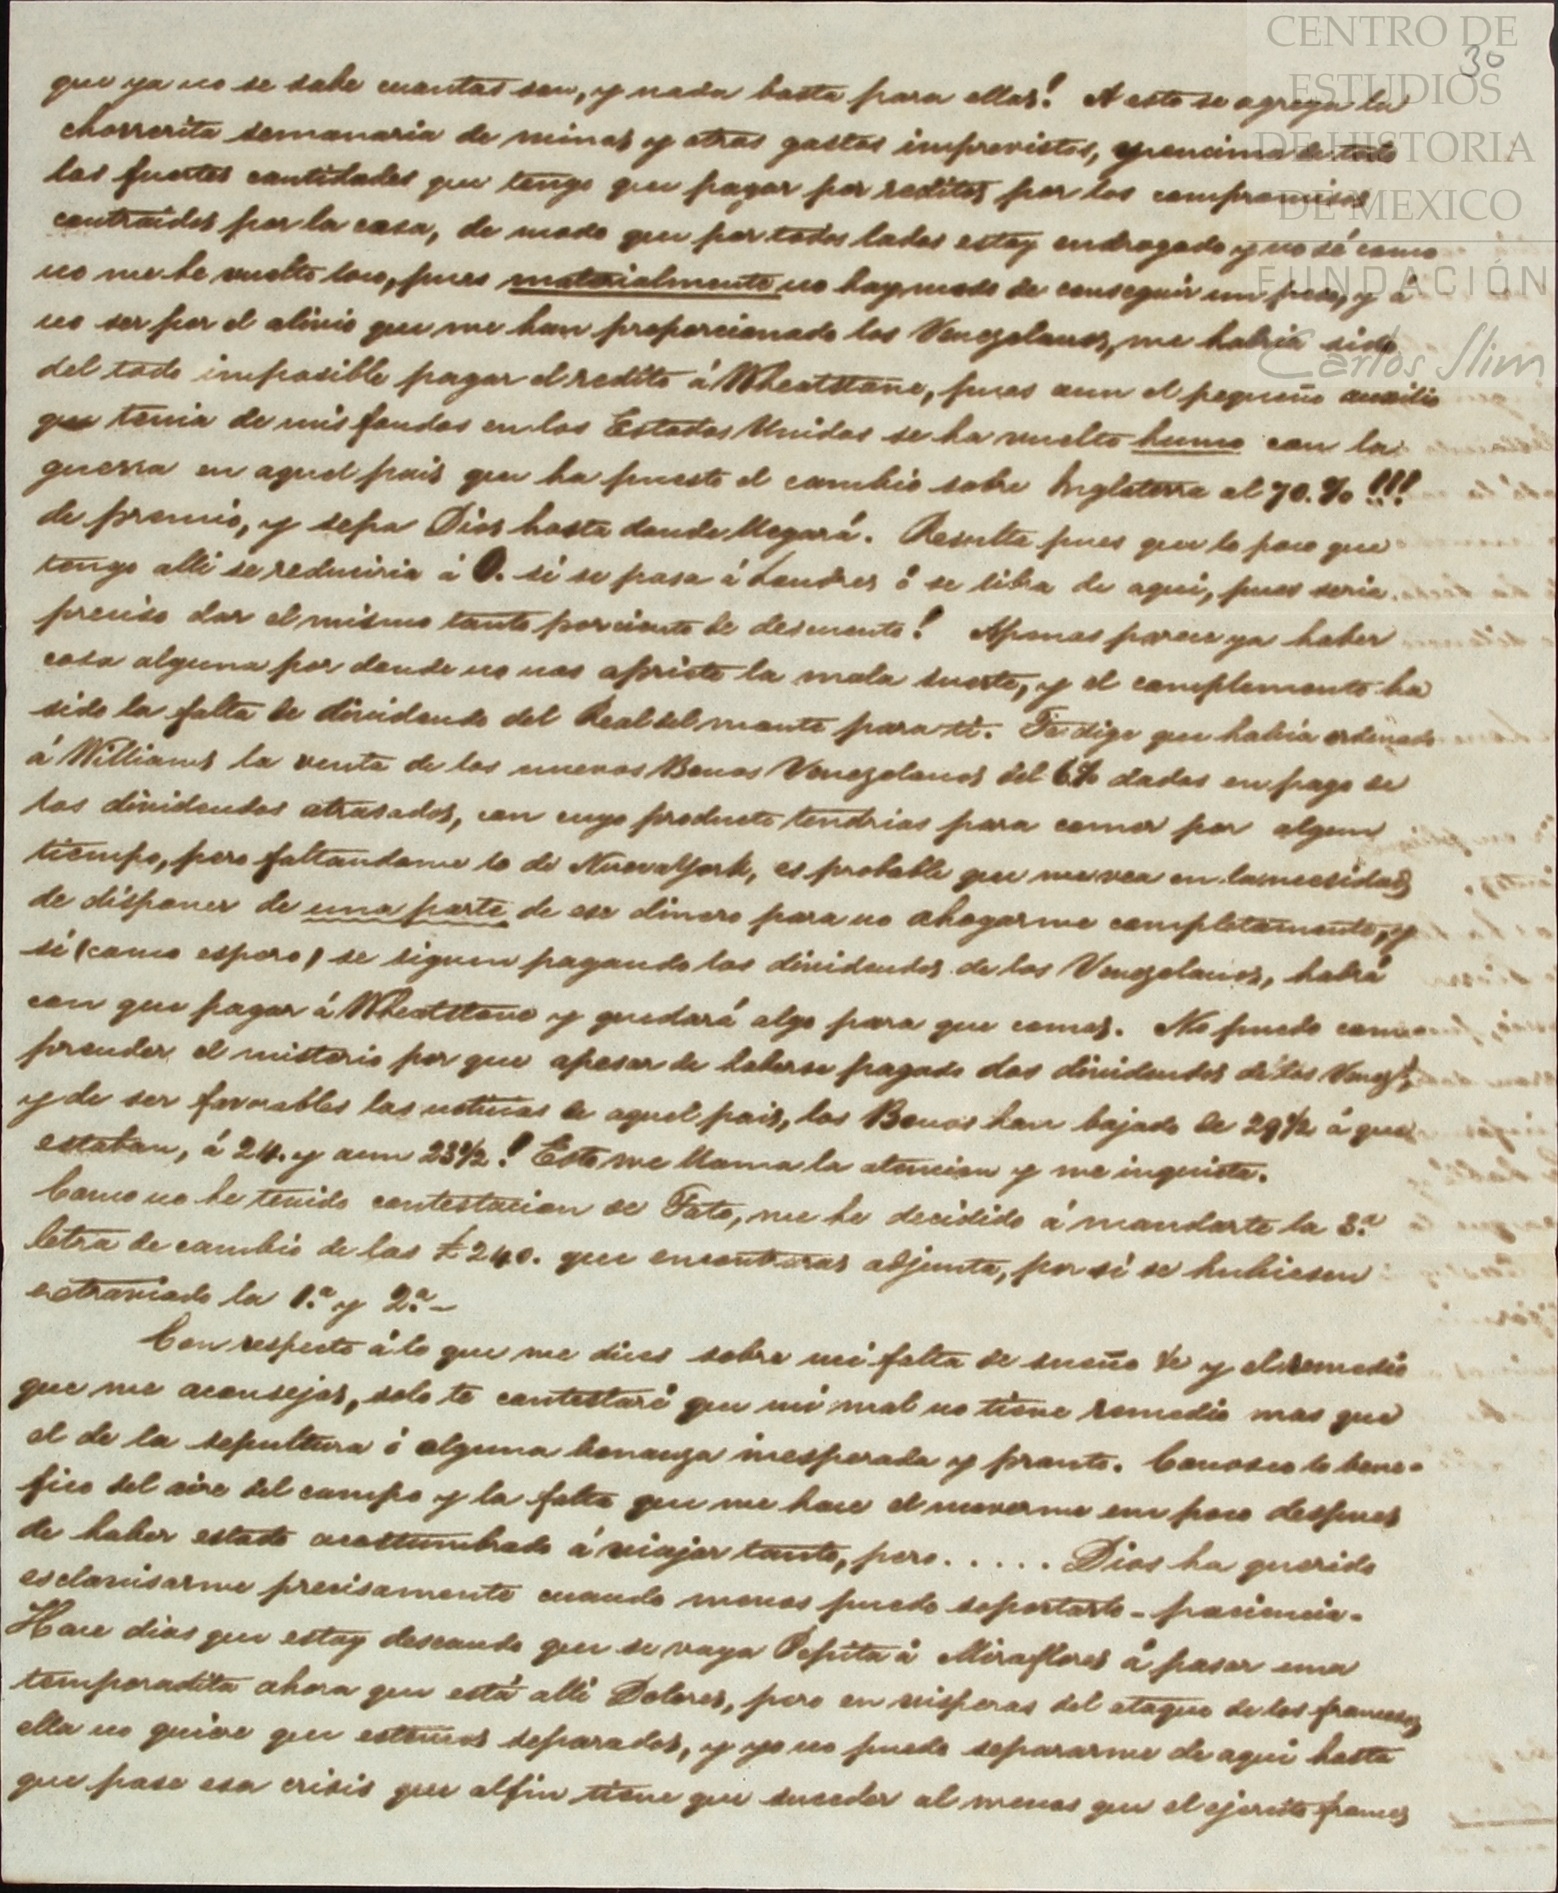 CENTRO DE
ESTUDIOS
DE HISTORIA
DE MEXICO
FUNDACIÓN
Carlos Slim
30
que ya no se sabe cuantas son, y nada basta para ellas! A esto se agrega la
chorrerita semanaria de minas y otros gastos imprevistos, y encima de todo
las fuertes cantidades que tengo que pagar por reditos por los compromisos
contraidos por la casa, de modo que por todos lados estoy endrogado y no sé como
no me he vuelto loco, pues materialmente no hay modo de conseguir un peso, y á
no ser por el alivio que me han proporcionado los Venezolanos, me habria sido
del todo imposible pagar el redito á Wheatstone, pues aun el pequeño auxilio
que tenia de mis fondos en los Estados Unidos se ha vuelto humo con la
guerra en aquel pais que ha puesto el cambio sobre Inglaterra al 70.% !!!
de premio, y sepa Dios hasta donde llegará. Resulta pues que lo poco que
tengo alli se reduciria á 0. si se pasa á Londres ó se libra de aqui, pues seria
preciso dar el mismo tanto por ciento de descuento! Apenas parece ya haber
cosa alguna por donde no nos apriete la mala suerte, y el complemento ha
sido la falta de dividendo del Real del monte para ti. Te dige que habia ordenado
á Williams la venta de los nuevos Bonos Venezolanos del 6% dados en pago de
los dividendos atrasados, con cuyo producto tendrias para comer por algun
tiempo, pero faltandome lo de Nueva York, es probable que me vea en la necesidad
de disponer de una parte de ese dinero para no ahogarme completamente, y
si (como espero) se siguen pagando los dividendos de los Venezolanos, habrá
con que pagar á Wheatstone y quedará algo para que comas. No puedo com-
prender el misterio por que apesar de haberse pagado dos dividendos de los Venezs.
y de ser favorables las noticias de aquel pais, los Bonos han bajado de 29½ á que
estaban, á 24. y aun 23½! Esto me llama la atencion y me inquieta.
Como no he tenido contestacion de Tato, me he decidido á mandarte la 3.ª
letra de cambio de las £240. que encontraras adjunta, por si se hubiesen
extraviado la 1.ª y 2.ª –
Con respecto á lo que me dices sobre mi falta de sueño &c y el remedio
que me aconsejas, solo te contestaré que mi mal no tiene remedio mas que
el de la sepultura ó alguna bonanza inesperada y pronto. Conosco lo bene-
fico del aire del campo y la falta que me hace el moverme un poco despues
de haber estado acostumbrado á viajar tanto, pero . . . . . Dios ha querido
esclavisarme precisamente cuando menos puedo soportarlo - paciencia -
Hace dias que estoy deseando que se vaya Pepita á Miraflores á pasar una
temporadita ahora que está alli Dolores, pero en visperas del ataque de los franceses
ella no quiere que estemos separados, y yo no puedo separarme de aqui hasta
que pase esa crisis que al fin tiene que suceder al menos que el ejercito frances